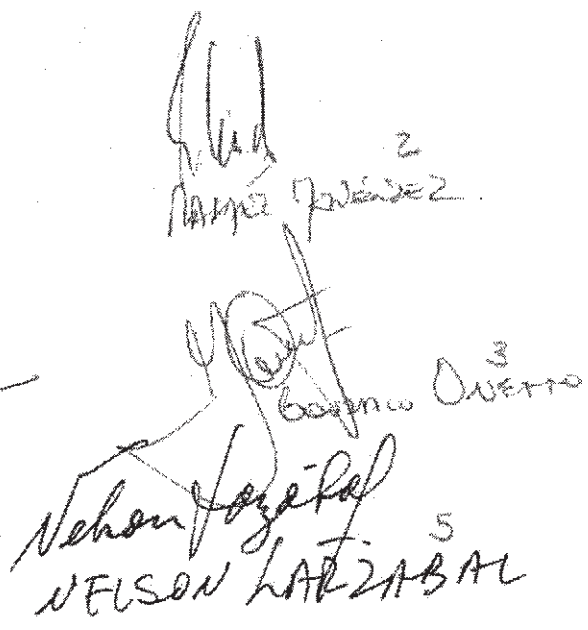 2
MENÉNDEZ
3
GONZALO ONETTO
Nelson Larzábal
5
NELSON LARZABAL